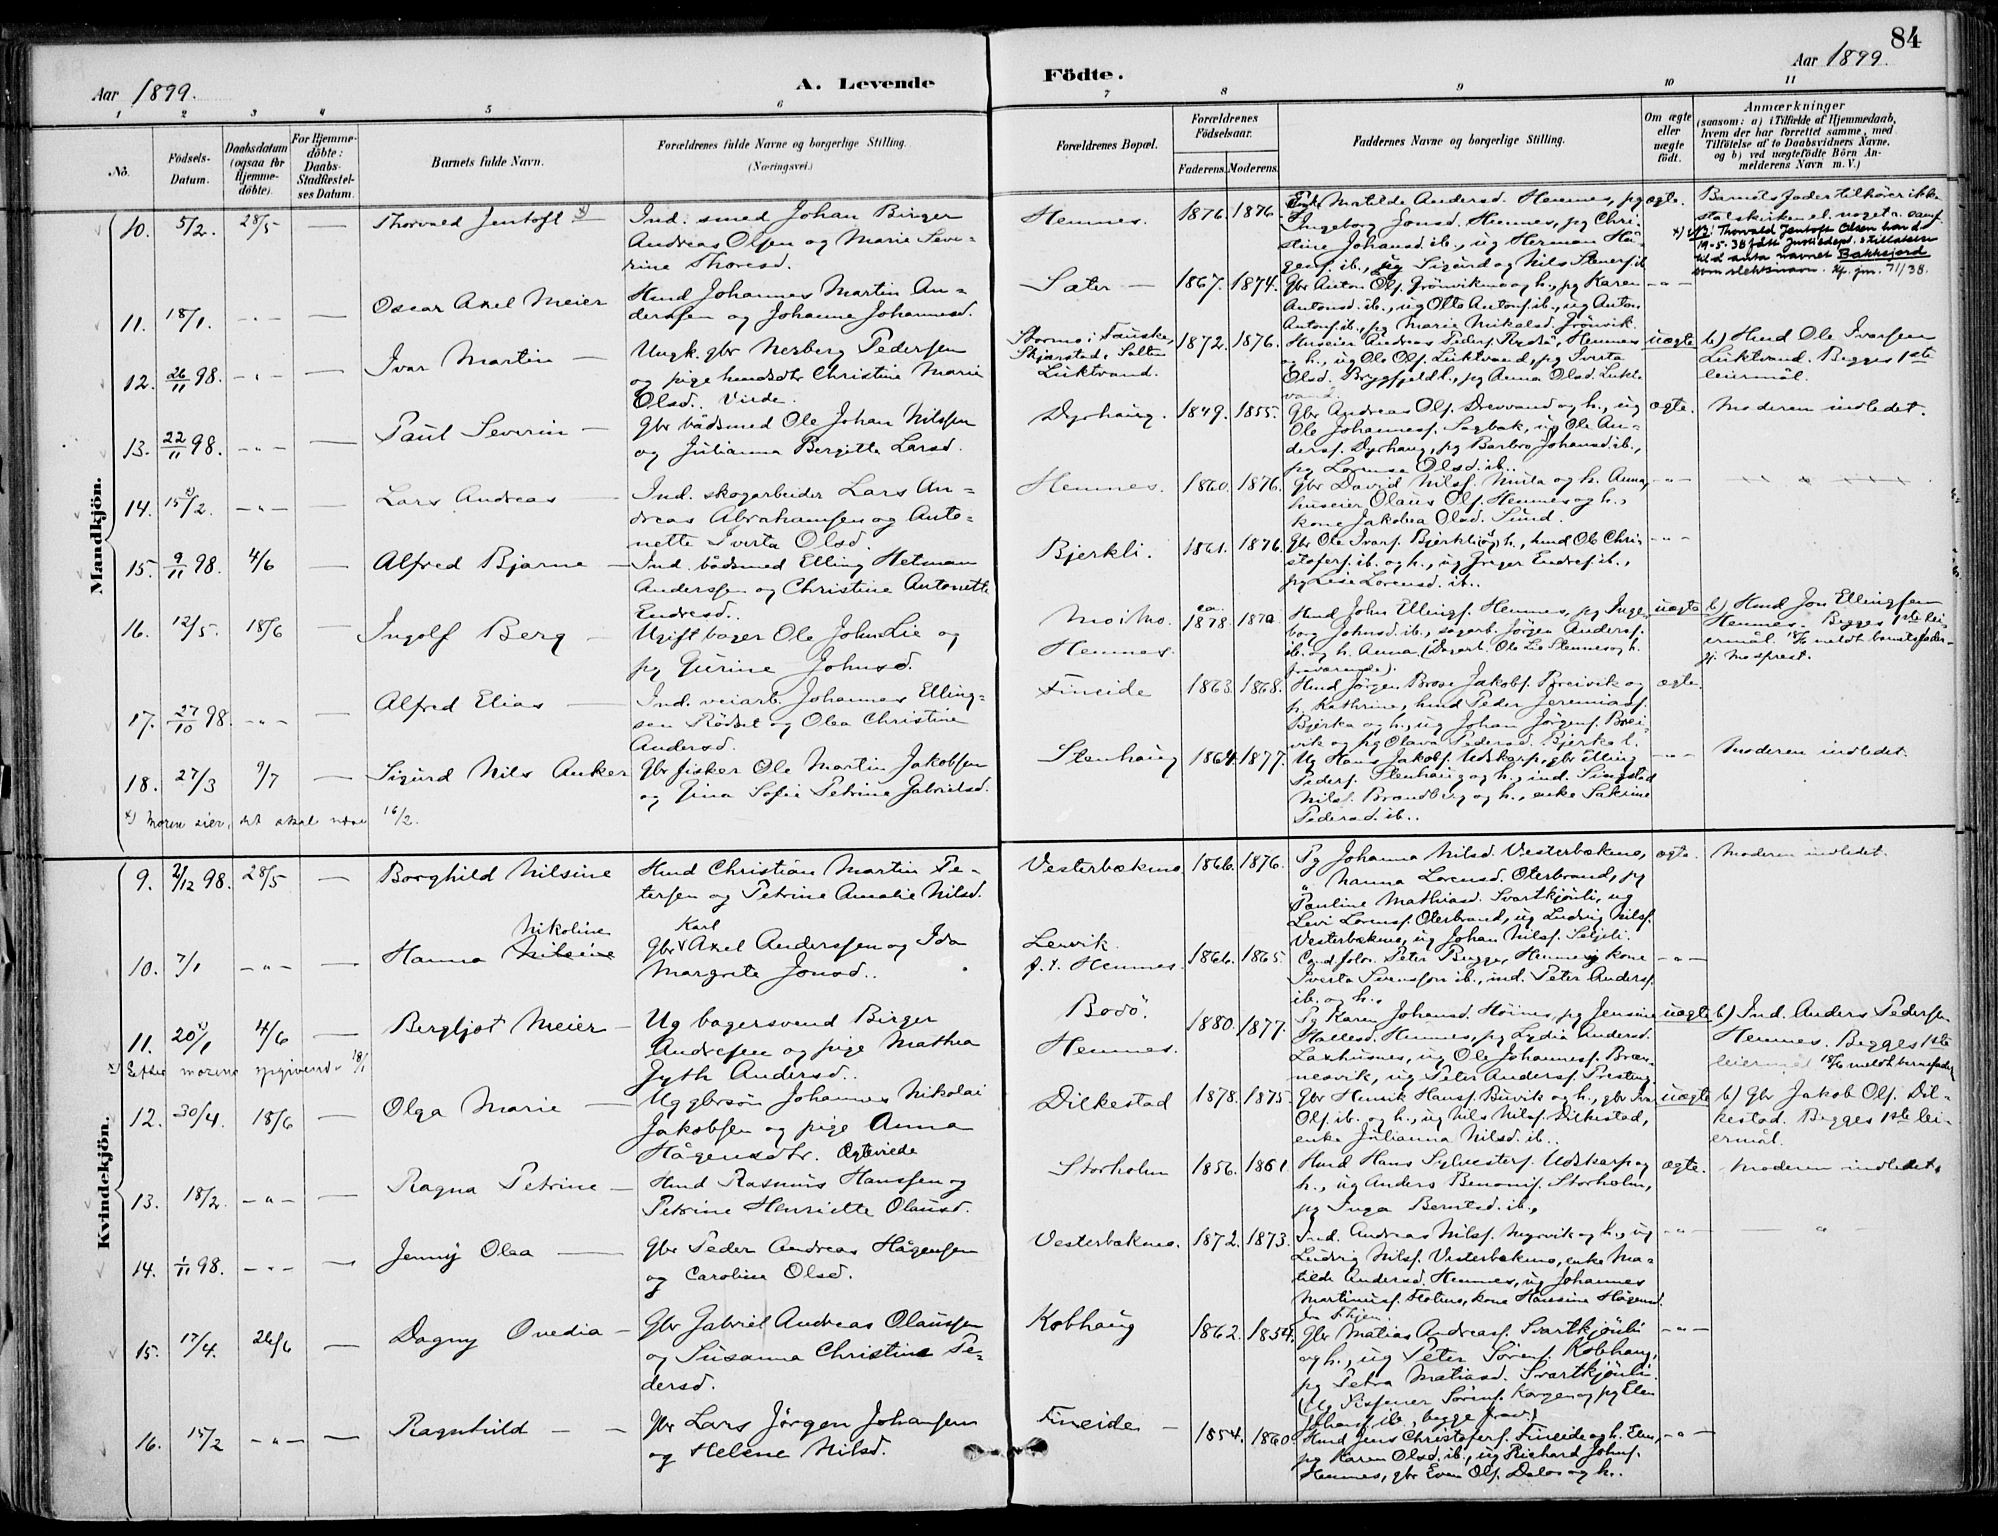 84
Aar 1899.
A. Levende
Födte.
Aar 1899.
1 2 3 4 5 6 7 8 9 10 11
No.
Födsels-
Datum.
Daabsdatum
(ogsaa for
Hjemme-
döbte).
For Hjemme-
döbte:
Daabs-
Stadfestel-
ses Datum.
Barnets fulde Navn.
Forældrenes fulde Navne og borgerlige Stilling.
(Næringsvei.)
Forældrenes Bopæl.
Forældrenes
Födselsaar.
Faderens. Moderens.
Faddernes Navne og borgerlige Stilling.
Om ægte
eller
uægte
födt.
Anmærkninger
(saasom: a) i Tilfælde af Hjemmedaab,
hvem der har forrettet samme, med
Tilföielse af to Daabsvidners Navne,
og b) ved uægtefödte Börn An-
melderens Navn m. V.)
Mandkjön.
10. 5/2. 28/5 — Thorvald Jentoft x) —
Ind. smed Johan Birger
Andreas Olsen og Marie Seve-
rine Thoresd.
Hemnes. 1876. 1876.
Matilde Andersd. Hemnes, pg
Ingeborg Jonsd. Hemnes, pg Chri-
stine Johansd. ib., ug Herman Hå-
gens. ib., ug Sigurd og Nils Stenersf. ib.
ægte.
Barnets fader tilhører ikke
statskirken el. noget a. samf.
x) NB: Thorvald Jentoft Olsen har d.
19-5-38 fått Justisdepd. s tillatelse
til å anta navnet Bakksjord
som slektsnavn. Kf. jnr. 71/38.
11. 18/1. -"- — Oscar Axel Meier
Hmd Johannes Martin An-
dersen og Johanna Johannesd.
Sæter — 1867. 1874.
Gbr Anton Olsf. Grönvikmo og h., pg Karen
Antonsd. ib., ug Otto Antonsf. ib., ug Anton
Antonsf. ib., pg Marie Nikolsd. Grönvik.
-"-
12. 26/11 98. -"- — Ivar Martin —
Ungk. gbr Nerberg Pedersen
og pige husmdtr Christine Marie
Olsd. Viede.
Stormo i Fauske,
Skjerstad, Salten
Luktvand.
1872. 1876.
Huseier Andreas Pedersf. Rödsö, Hemnes
og h., ug Ole Olsf. Luktvand, pg Iverta
Olsd. Brygfjeld l., pg Anna Olsd. Lukt-
vand.
uægte
b) Hmd Ole Ivarsen
Luktvand. Begges 1ste
leiermål.
13. 22/11 98. -"- — Paul Severin —
Gbr bådsmed Ole Johan Nilssen
og Julianna Bergitta Larsd.
Dyrhaug. 1849. 1855.
Gbr Andreas Olsf. Drevvand og h., ug
Ole Johannesf. Sagbak, ug Ole An-
dersf. Dyrhaug, pg Barbro Johansd. ib.,
pg Lorense Olsd. ib.
ægte. Moderen indledet.
14. 15x)/2. -"- — Lars Andreas —
Ind. skogarbeider Lars An-
dreas Abrahamsen og Anto-
nette Iverta Olsd.
Hemnes. 1860. 1876.
Gbr David Nilsf. Mula og h. Anna,
huseier Olaus Olsf. Hemnes og h.,
kone Jakobea Olsd. Sund.
-"-
15. 9/11 98. 4/6 — Alfred Bjarne —
Ind. bådsmed Elling Hetman
Anderssen og Christine Antonette
Endresd.
Bjerkli. 1861. 1876.
Gbr Ole Ivarsf. Bjerkli og h., hmd Ole Chri-
stofersf. ib. og h., ug Greger Endresf. ib.,
pg Lise Lorensd. ib..
-"-
16. 12/5. 18/6 — Ingolf Berg —
Ugift bager Ole John Lie og
pg Gurine Johnsd.
Mo i Mo.
Hemnes.
ca. 1878. 1870.
Hmd John Ellingsf. Hemnes, pg Inge-
borg Johnsd. ib., sagarb. Jörgen Andersf.
ib. og h. Anna (Dagarb. Ole Lie Stennes og h.
fraværende).
uægte
b) Hmd Jon Ellingsen
Hemnes. Begges 1ste lei-
ermål. 18/6 meldt barnefader-
gj. Mo sprest.
17. 27/10 98. -"- — Alfred Elias —
Ind. veiarb. Johannes Elling-
sen Rödset og Olea Christine
Andersd.
Fineide 1863. 1868.
Hmd Jörgen Brose Jakobsf. Breivik og
h. Kathrine, hmd Peder Jeremiasf.
Bjerka og h., ug Johan Jörgensf. Brei-
vik og pg Olava Pedersd. Bjerka l.
ægte.
18. 27/3 9/7 — Sigurd Nils Anker
Gbr fisker Ole Martin Jakobsen
og Gina Sofie Petrine Gabrielsd.
Stenhaug 1864. 1877.
Ug Hans Jakobsf. Udskarp, gbr Elling
Pedersf. Stenhaug og h., ind. Singstad
Nilsf. Brandberg og h., enke Sakrine
Pedersd. ib..
-"- Moderen indledet.
x) Moren sier, det skal være 16/2.
Kvindekjön.
9. 2/12 98. 28/5 — Borghild Nilsine
Hmd Christian Martin Pe-
tersen og Petrine Amalie Nilsd.
Vesterbækmo 1866. 1876.
Pg Johanna Nilsd. Vesterbækmo,
" Nanna Lorensd. Oterbrand, pg
Pauline Mathiasd. Svartkjönli, ug
Levi Lorensf. Oterbrand, ug Ludvig Nilsf.
Vesterbækmo, ug Johan Nilsf. Seljeli.
ægte. Moderen indledet.
10. 7/1 -"- — Hanna Nilsine Nikoline
Gbr Karl Axel Anderssen og Ida
Margrete Jonsd..
Lervik.
f. t. Hemnes.
1866. 1865.
Cand. filos. Peter Bugge, Hemnes, kone
Iverta Svensson ib., ind. Peter Andersf.
ib. og h..
-"-
11. 20x)/1 4/6 — Bergljot Meier —
Ug bagersvend Birger
Andresen og pige Mathea
Gyth Andersd..
Bodö.
Hemnes.
1880. 1877.
Pg Karen Johansd. Höines, pg Jensine
Hallesd. Hemnes, pg Lydia Andersd.
Laxhusnes, ug Ole Johannesf. Bræn-
nesvik, ug Peter Andersf. Presteng.
uægte
b) Ind. Anders Pedersen
Hemnes. Begges 1ste
leiermål. 18/6 meldt barnefader
x) Efter morens opgivende 18/1
12. 30/4. 18/6 — Olga Marie —
Ug gbrsön Johannes Nikolai
Jakobsen og pige Anna
Hågensdtr. Ægteviede
Dilkestad 1878. 1875.
Gbr Henrik Hansf. Buvik og h., gbr Iva
Olsf. ib. og h., ug Nils Nilsf. Dilkestad,
enke Julianna Nilsd. ib..
uægte
b) Gbr Jakob Olsf. Dil-
kestad. Begges 1ste lei-
ermål.
13. 18/2. -"- — Ragna Petrine —
Hmd Rasmus Hanssen og
Petrine Henriette Olausd.
Storholm 1856. 1861.
Hmd Hans Sylvestersf. Udskarp og
h., ug Anders Benonisf. Storholm,
pg Inga Berntsd. ib.,
ægte. Moderen indledet.
14. 1/11 98. -"- — Jenny Olea —
Gbr Peder Andreas Hågensen
og Caroline Olsd.
Vesterbækmo. 1872. 1873.
Ind. Andreas Nilsf. Myrvik og h., ug
Ludvig Nilsf. Vesterbækmo, enke Ma-
tilde Andersd. Hemnes, ug Johannes
Martinusf. Flotmo, kone Hansine Hågensd.
-"- — " —
15. 17/4. 26/6 — Dagny Ovedia —
Gbr Gabriel Andreas Olaussen
og Susanna Christine Pe-
dersd.
Kobhaug 1862. 1854.
Gbr Matias Andreasf. Svartkjönli
og h., ug Peter Sörensf. Kobhaug,
pg Petra Matiasd. Svartkjönli.
-"-
16. 15/2 -"- — Ragnhild — —
Gbr Lars Jörgen Johansen
og Helene Nilsd.
Fineide — 1854. 1860.
Hmd Jens Christofersf. Fineide og h. Elen,
pg Karen Olsd. ib., ug Richard Johnsf.
Hemnes, gbr Even Olsf. Dalos og h..
-"-